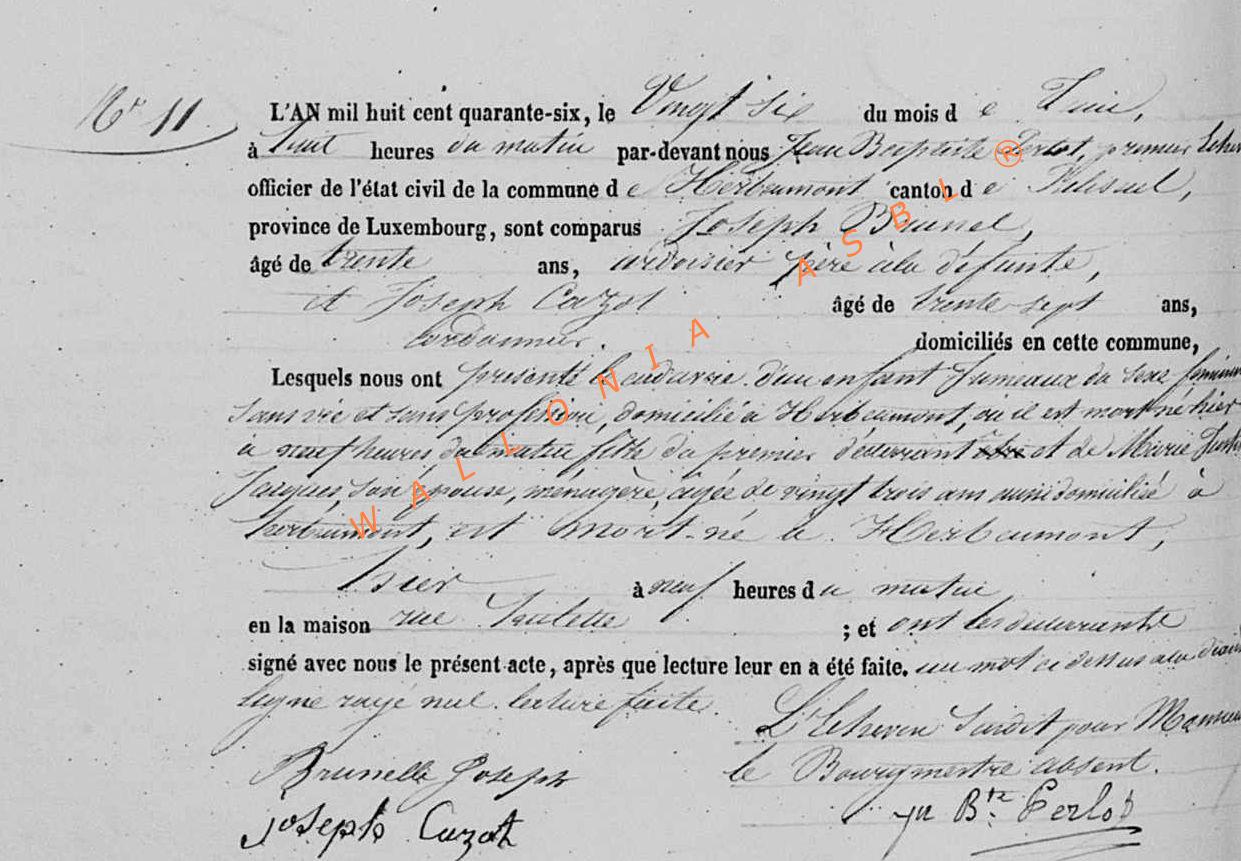 Nr 11
L'AN mil huit cent quarante-six, le Vingt six du mois d e Juin,
à huit heures du matin par-devant nous Jean Baptiste Perlot, premier Echev
officier de l'état civil de la commune d e Herbeumont canton d e Paliseul,
province de Luxembourg, sont comparus Joseph Brunel,
âgé de trente ans, ardoisier père à la défunte,
et Joseph Cazot âgé de trente-sept ans,
Cordonnier. domiciliés en cette commune,
Lesquels nous ont présenté le cadavre d'un enfant Jumeaux du sexe féminin
sans vie et sans profession, domicilié à Herbeumont, où il est mort né hier
à neuf heures du matin fille du premier déclarant et de Marie
Jacques, son épouse, ménagère, âgée de vingt trois ans aussi domicilié à
herbeumont, est mort-né à Herbeumont,
hier à neuf heures d u matin
en la maison rue ; et ont les déclarants
signé avec nous le présent acte, après que lecture leur en a été faite. un mot ci dessus à la
ligne rayé nul. lecture faite.
L'Echevin Susdit pour Monsieur
le Bourgmestre absent.
Brunelle Joseph
Joseph Cazot
Jn Bte Perlot
WALLONIA ASBL ®